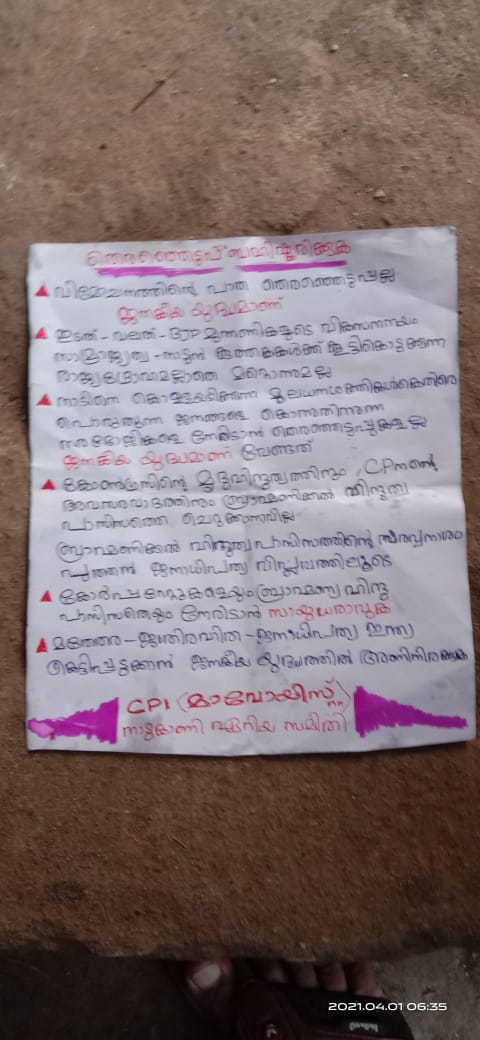 തെരഞ്ഞെടുപ്പ് ബഹിഷ്കരിക്കുക
▲ വിമോചനത്തിന്റെ പാത തെരഞ്ഞെടുപ്പല്ല
ജനകീയ യുദ്ധമാണ്
▲ ഇടത് - വലത് - BJP മുന്നണികളുടെ വികസനനയം
സാമ്രാജ്യത്വ - നാടൻ കുത്തകകൾക്ക് കൂട്ടികൊടുക്കുന്ന
രാജ്യദ്രോഹമല്ലാതെ മറ്റൊന്നുമല്ല
▲ നാടിനെ കൊള്ളയടിക്കുന്ന മൂലധനശക്തികൾക്കെതിരെ
പൊരുതുന്ന ജനങ്ങളെ കൊന്നുതിന്നുന്ന
നരഭോജികളെ നേരിടാൻ തെരഞ്ഞെടുപ്പുകളല്ല
ജനകീയ യുദ്ധമാണ് വേണ്ടത്
▲ കോൺഗ്രസിന്റെ മൃദുഹിന്ദുത്വത്തിനും, CPMന്റെ
അവസരവാദത്തിനും ബ്രാഹ്മണിക്കൽ ഹിന്ദുത്വ
ഫാസിസത്തെ ചെറുക്കാനാവില്ല
ബ്രാഹ്മണിക്കൽ ഹിന്ദുത്വഫാസിസത്തിന്റെ സർവ്വനാശം
പുത്തൻ ജനാധിപത്യ വിപ്ലവത്തിലൂടെ
▲ കോർപ്പറേറ്റുകളെയും ബ്രാഹ്മണ്യ ഹിന്ദു
ഫാസിസത്തെയും നേരിടാൻ സായുധരാവുക
▲ മതേതര - ജാതിരഹിത - ജനാധിപത്യ ഇന്ത്യ
കെട്ടിപ്പടുക്കാൻ ജനകീയ യുദ്ധത്തിൽ അണിനിരക്കുക
CPI (മാവോയിസ്റ്റ്)
നാടുകാണി ഏരിയ സമിതി
2021.04.01 06:35